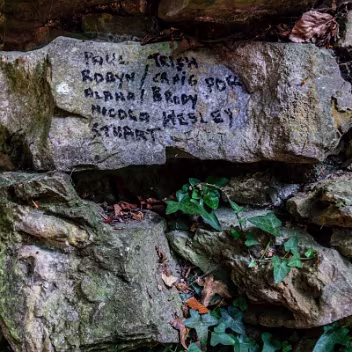 PAUL TRISH
ROBYN / CRAIG
ALANA / BRODY
NICOLA WESLEY
STUART